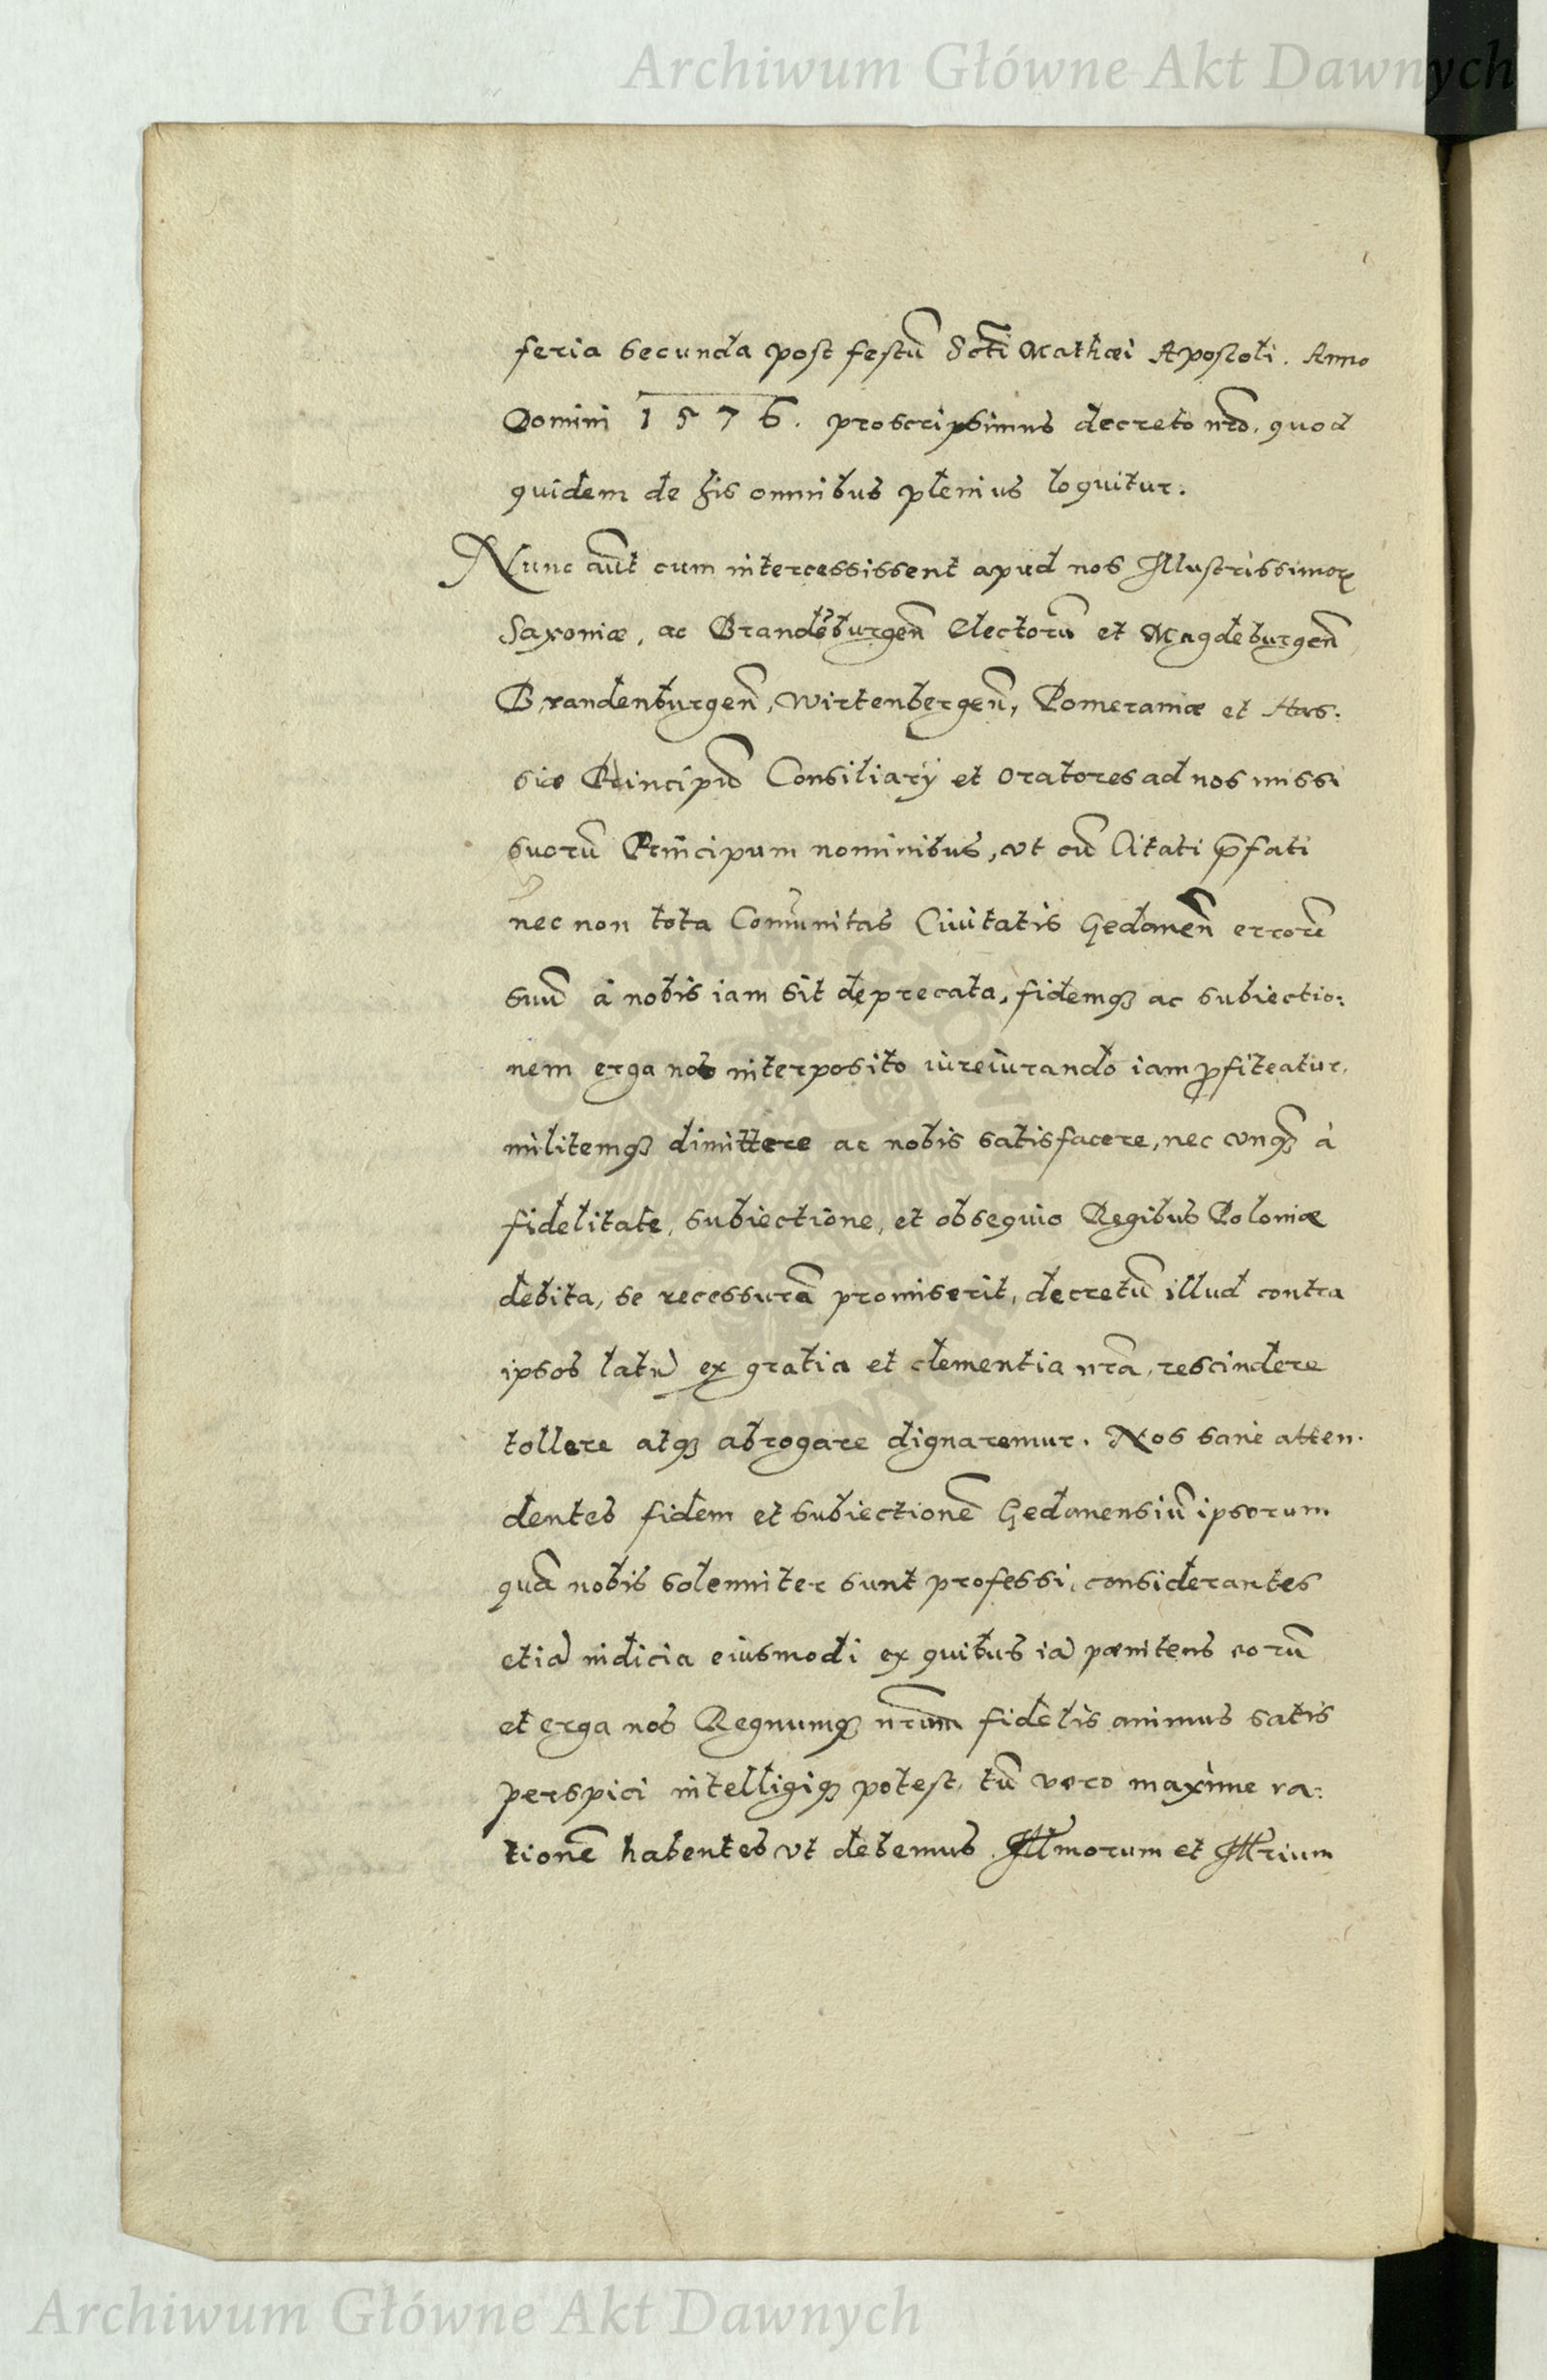 Archiwum Główne Akt Dawnych
feria secunda post festū Scti Mathæi Apostoli. Anno
Domini 1576. proscripsimus decreto nr̃o, quod
quidem de his omnibus plenius loquitur.
Nunc aūt cum intercessissent apud nos Illustrissimoꝝ
Saxoniæ, ac Brandēburgeñ Electorū et Magdeburgeñ
Brandenburgeñ, Wirtenbergeñ, Pomeraniæ et Has:
siæ Principū Consiliarÿ et Oratores ad nos missi
suorū Principum nominibus, vt cū Citati p̄fati
nec non tota Com̄unitas Ciuitatis Gedaneñ errorē
suū à nobis iam sit deprecata, fidemqꝫ ac subiectio:
nem erga nos interposito iureiurando iam ꝓfiteatur,
militemqꝫ dimittere ac nobis satisfacere, nec vnqꝫ à
fidelitate, subiectione, et obsequio Regibus Poloniæ
debita, se recessurā promiserit, decretū illud contra
ipsos latū ex gratia et clementia nr̃a, rescindere
tollere atqꝫ abrogare dignaremur. Nos sanè atten.
dentes fidem et subiectionē Gedanensiū ipsorum
quā nobis solemniter sunt professi, considerantes
etiā indicia eiusmodi ex quibus iā pœnitens eorū
et erga nos Regnumqꝫ nr̃um fidelis animus satis
perspici intelligiqꝫ potest, tū vero maxime ra:
tionē habentes vt debemus Illmorum et Illrium
Archiwum Główne Akt Dawnych